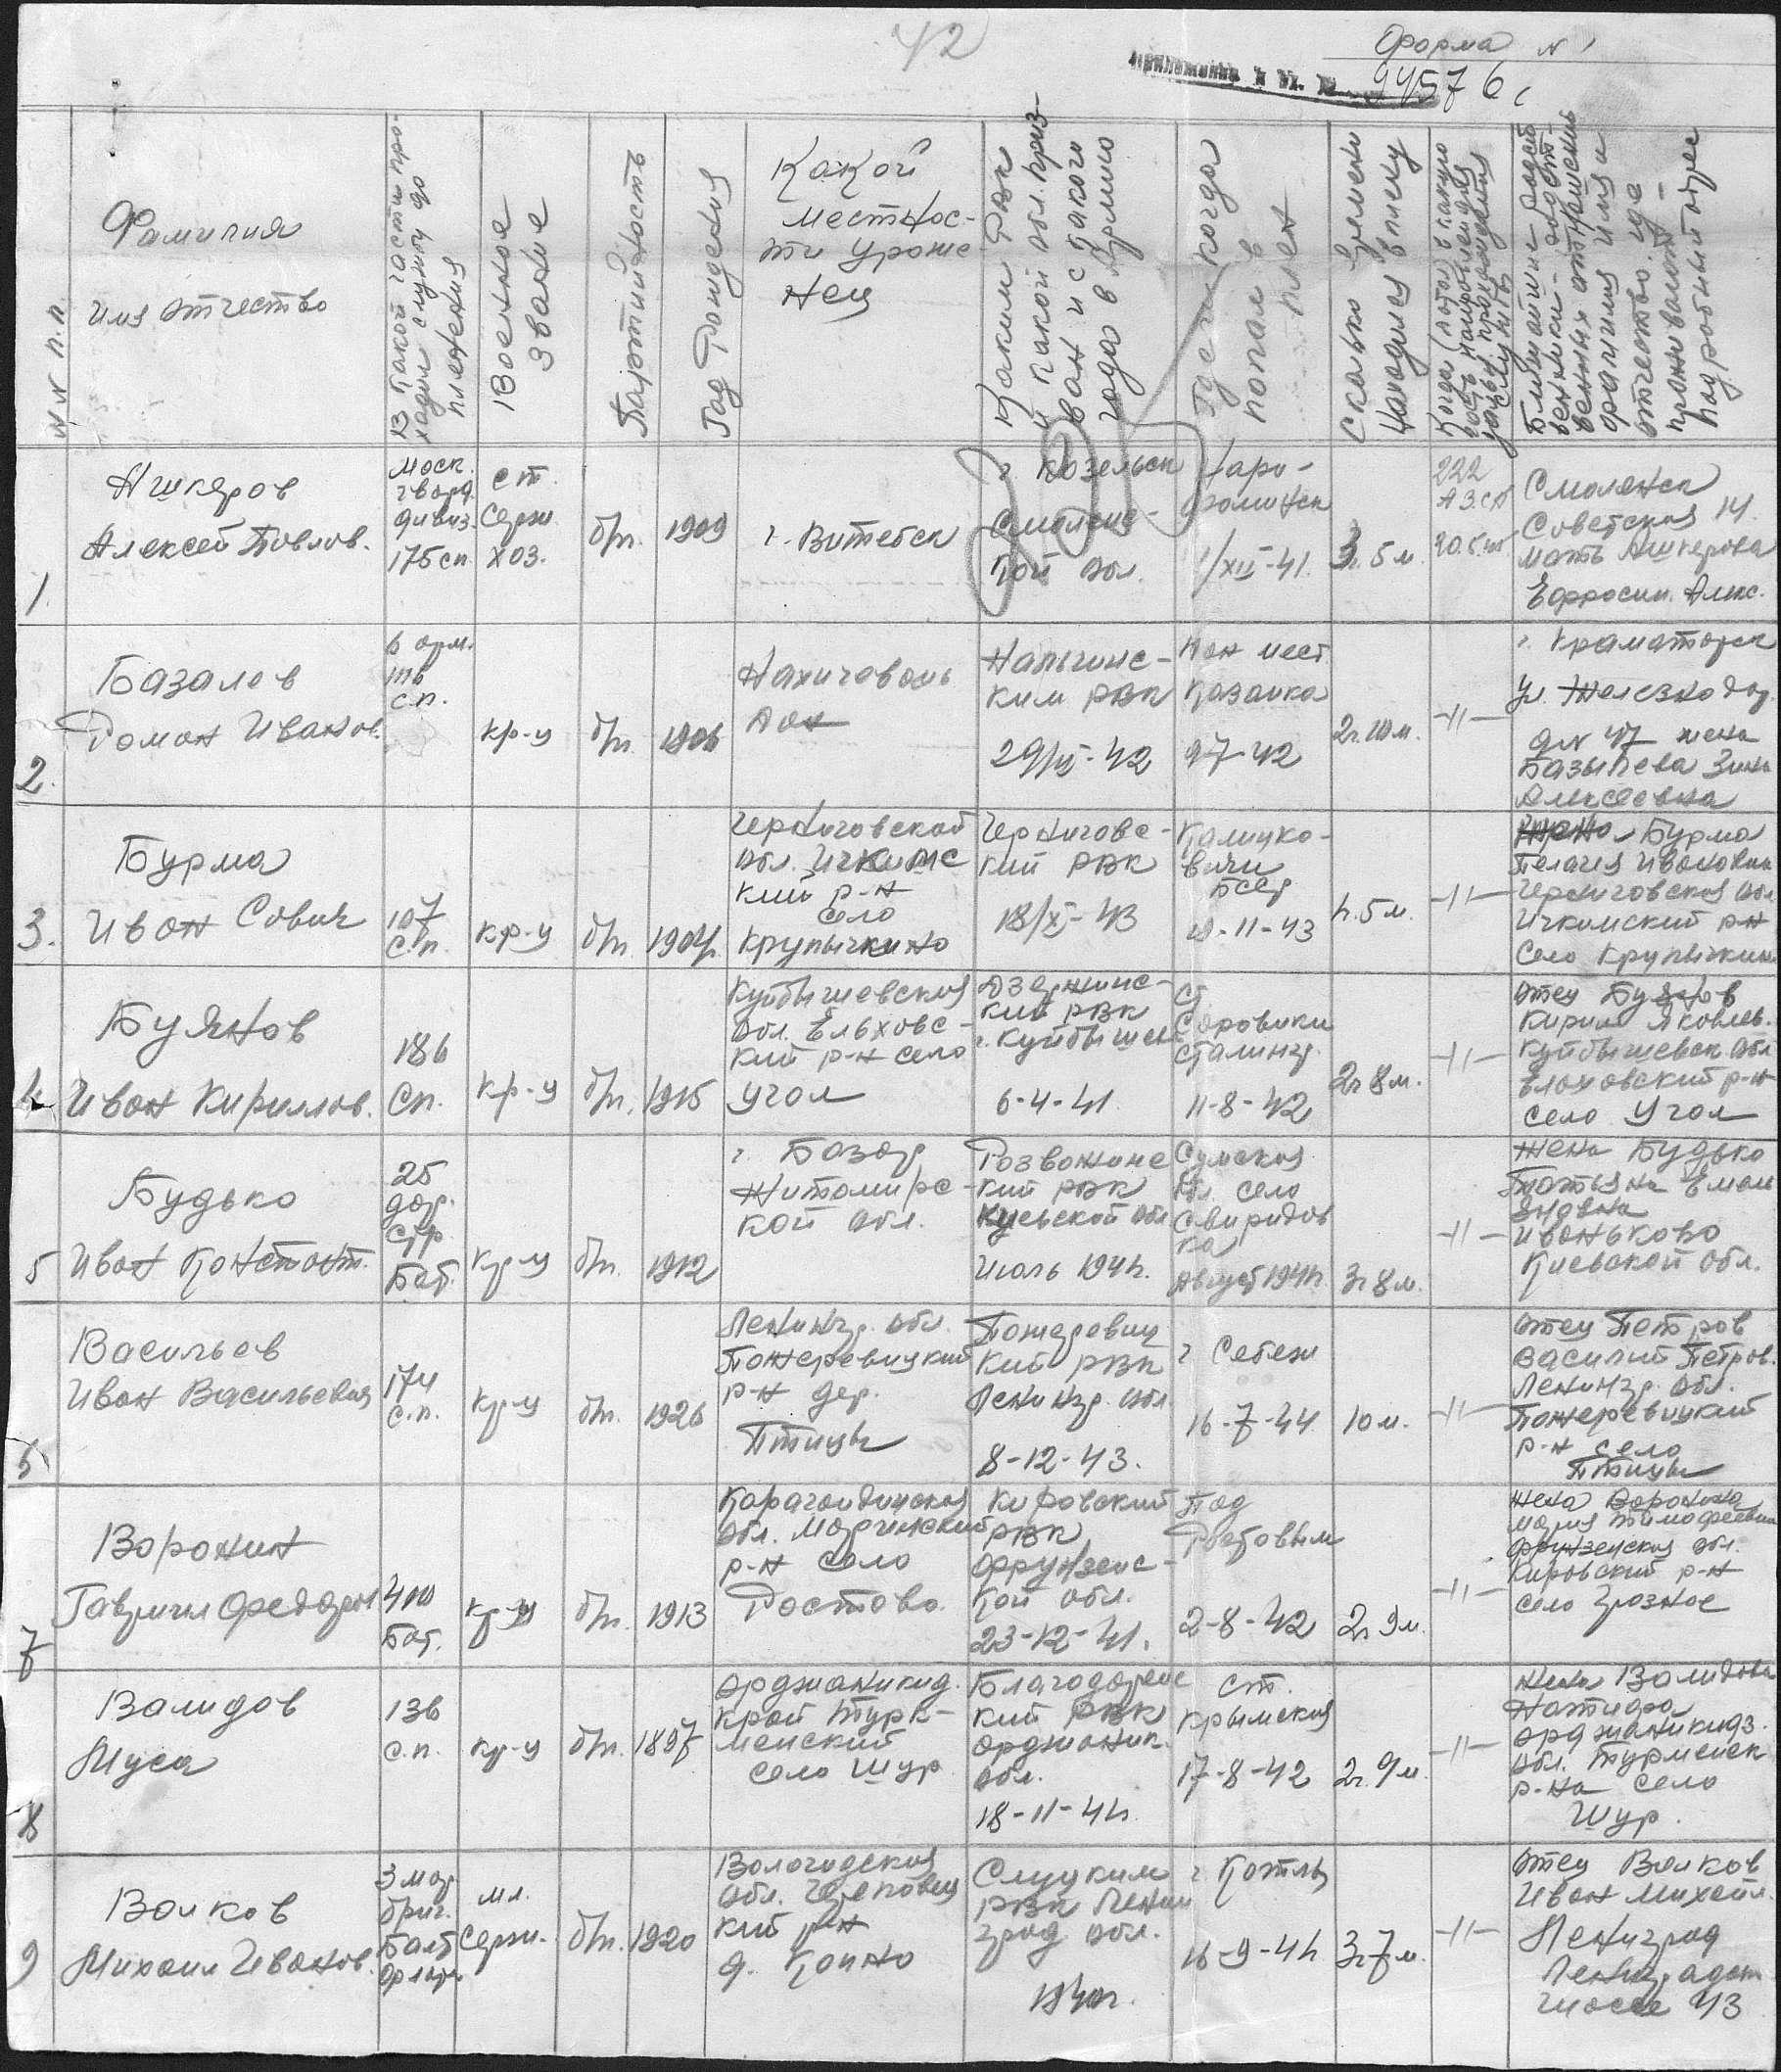 42
Форма N 1
94576с
N N п.п.
Фамилия
имя отчество
В какой части про-
ходил службу до
пленения
Военное
звание
Партийность
Год Рождения
Какой
местнос-
ти уроже
нец
Каким РВК
и какой обл. приз-
ван и с какого
года в Армию
Где и когда
попал в
плен
Сколько времени
находился в плену
Ближайшие родст-
венники
фамилия имя и
отчество. где
проживают
подробный адрес
1.
Ашкеров
Алексей Павлов.
моск.
гвард.
дивиз.
175 сп.
ст.
серж
хоз.
б/п.
1909
г. Витебск
г. Козельск
Смоленс-
кой обл.
Наро-
фоминск
1/XII-41.
3г. 5м.
222
АЗСП
Смоленск
Советская 14.
мать Ашкерова
Ефросин. Алекс.
2.
Базалев
Роман Иванов.
6 арм.
сп.
кр-ц
б/п.
1906
Нахичевань
Дон
Нальчинс-
ким РВК
42
Казанка
9-7-42
2г. 10м.
-11-
г. Краматорск
ул. Железнодор.
д N 47 жена
Базылева Зина
Алексеевна
3.
Бурма
Иван Савич
107
с.п.
кр-ц
б/п.
1904
Черниговской
обл. Ичкинс
кий р-н
село
Крупычкино
Черниговс-
кий РВК
18/X-43
Калинко-
вичи
БССР
19-11-43
1г. 5м.
-11-
Бурма
Пелагея Ивановна
Черниговская обл
Ичкинский р-н
село Крупичкино
4
Буянов
Иван Кириллов.
186
сп.
кр-ц
б/п.
1915
Куйбышевская
обл. Ельховс-
кий р-н село
Угол
Дзержинс-
кий РВК
г. Куйбышев
6-4-41.
ст
Саровики
Сталингр.
11-8-42
2г 8м.
-11-
отец Буянов
Кирилл Яковлев.
Куйбышевск обл
Елховский р-н
село Угол
5
Будько
Иван Констант.
25
дор.
стр.
Бат.
кр-ц
б/п.
1912
г. Базар
Житомирс-
кой обл.
Розважинс
кий РВК
Киевской обл
Июль 1941.
Сумская
обл. село
Свиридов
ка
Август 1941.
3г 8м.
-11-
жена Будько
Татьяна Емель
яновна
Иваньково
Киевской обл.
6
Васильев
Иван Васильевич
174
с.п.
кр-ц
б/п.
1926
Ленингр. обл.
Пожеревицкий
р-н дер.
Птицы
Пожеревиц
кий РВК
Ленингр. обл
8-12-43.
г Себеж
16-7-44
10 м.
-11-
отец Петров
Василий Петров.
Ленингр. обл.
Пожеревицкий
р-н село
Птицы
7
Воронин
Гаврил Федоров
400
Бат.
кр-ц
б/п.
1913
Карагандинская
обл.
р-н село
Ростово.
Кировский
РВК
Фрунзенс-
кой обл.
23-12-41.
Под
Ростовым
2-8-42
2г 9м.
-11-
жена Воронина
Мария Тимофеевна
Фрунзенская обл.
Кировский р-н
село Грозное
8
Валидов
Муса
136
с.п.
кр-ц
б/п.
1897
Орджоникид.
край Турк-
менский
село Шур
Благодаренс
кий РВК
Орджоник.
обл.
18-11-41.
ст.
Крымская
17-8-42
2г. 9м.
-11-
жена Валидова
Орджаникидз.
обл. Турменск
р-на село
Шур.
9
Волков
Михаил Иванов.
3 мор
бриг.
Балт
мл.
серж.
б/п.
1920
Вологодская
обл. Череповец
кий р-н
д. Коино
Слуцким
РВК Ленин
град обл.
1940г.
г. Котлы
16-9-41
3г. 7м.
-11-
отец Волков
Иван Михайл.
Ленинград
Ленинградск
шоссе 43